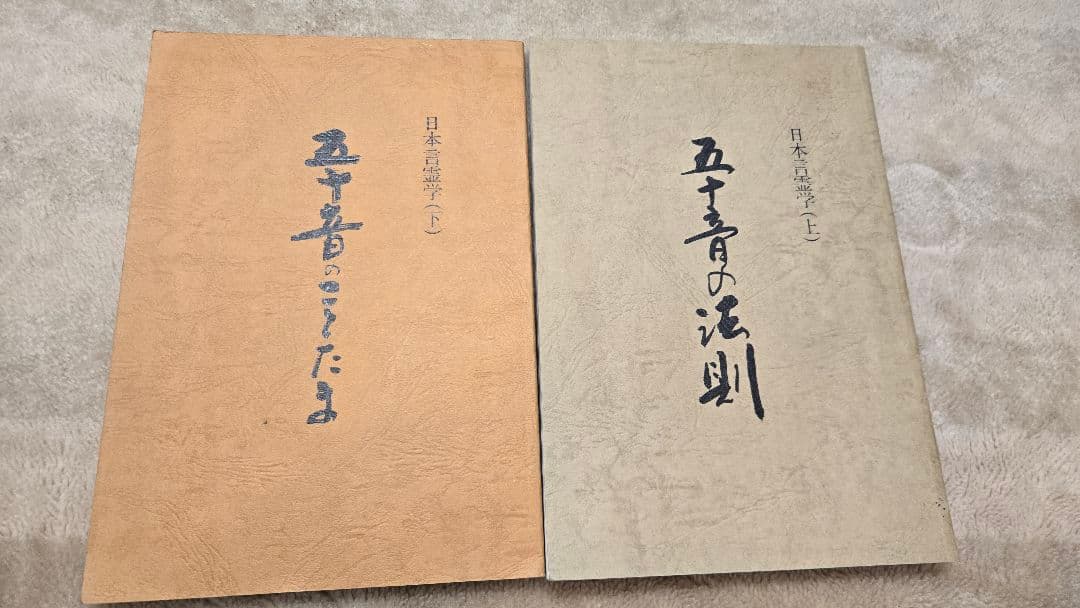 日本言霊学(上)
五十音の法則
日本言霊学(下)
五十音のことたま